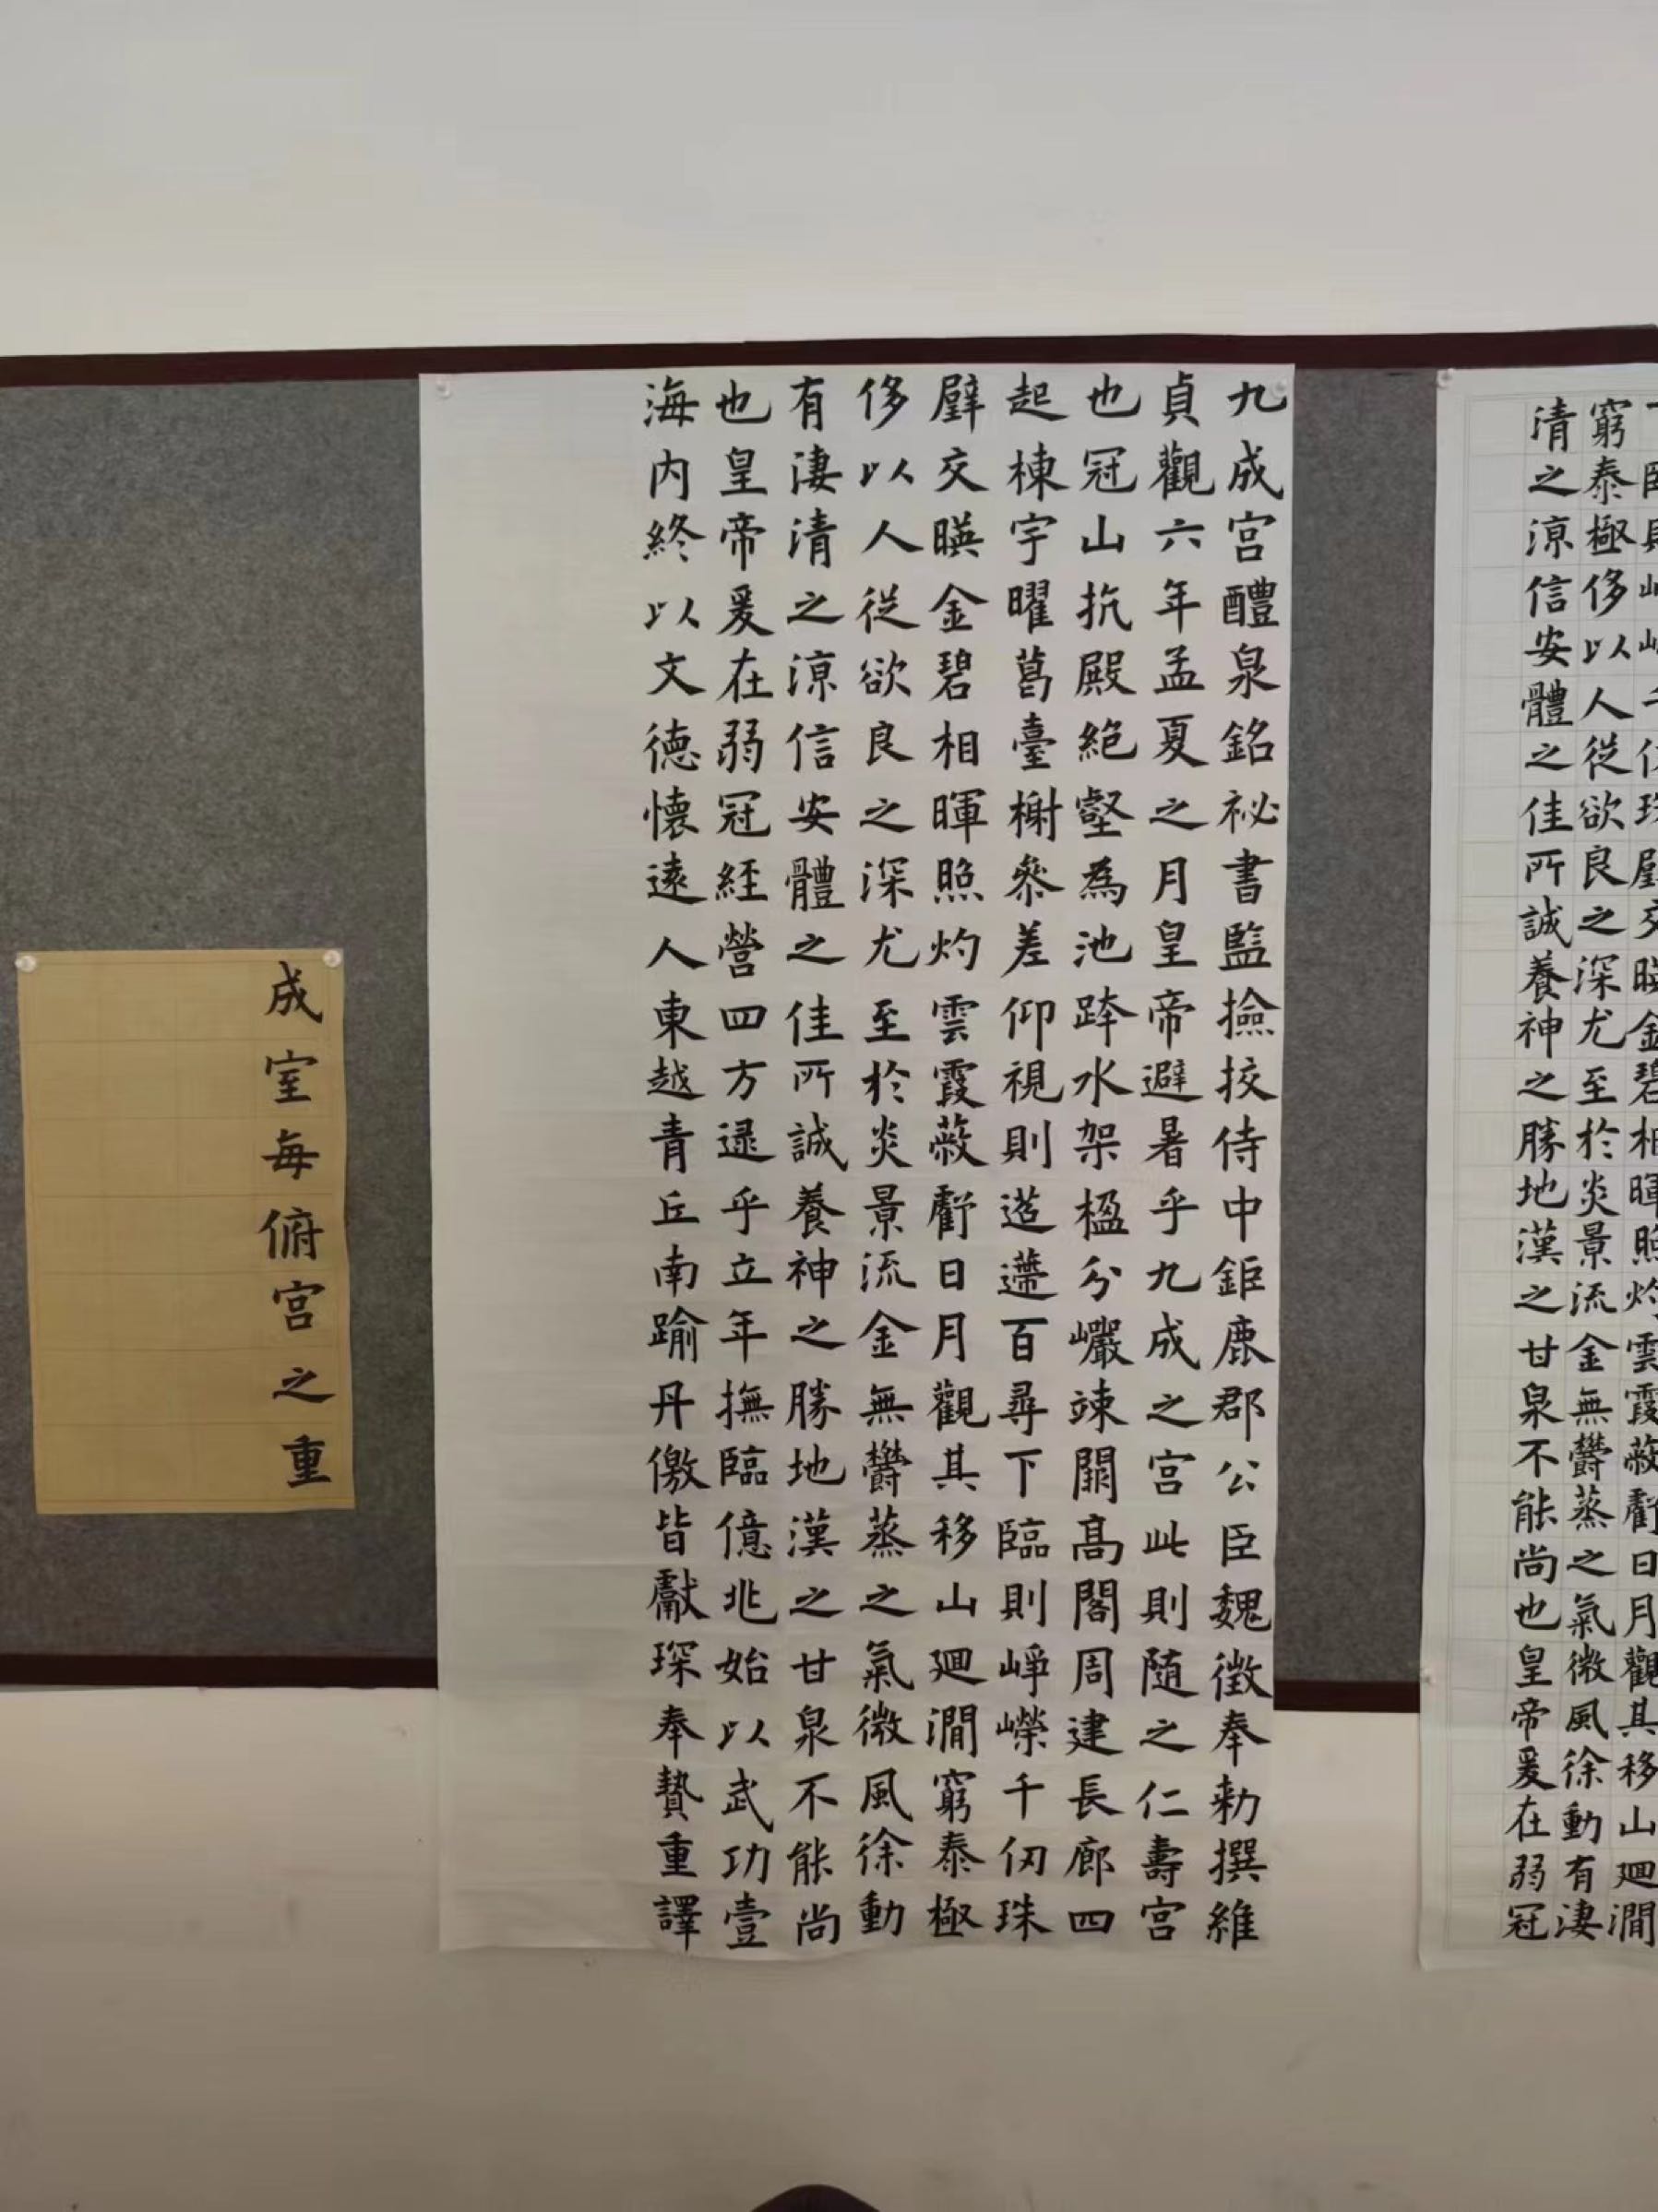 臨則崢嶸千仞珠壁交暎金碧相暉照灼雲霞蔽虧日月觀其移山迴澗
窮泰極侈以人從欲良之深尤至於炎景流金無欝蒸之氣微風徐動有淒
清之涼信安體之佳所誠養神之勝地漢之甘泉不能尚也皇帝爰在弱冠
九成宮醴泉銘祕書監撿挍侍中鉅鹿郡公臣魏徵奉勑撰維
貞觀六年孟夏之月皇帝避暑乎九成之宮此則随之仁壽宮
也冠山抗殿絕壑為池跨水架楹分巖竦闕高閣周建長廊四
起棟宇曜葛臺榭叅差仰視則迢遰百尋下臨則崢嶸千仞珠
壁交暎金碧相暉照灼雲霞蔽虧日月觀其移山迴澗窮泰極
侈以人從欲良之深尤至於炎景流金無欝蒸之氣微風徐動
有淒清之涼信安體之佳所誠養神之勝地漢之甘泉不能尚
也皇帝爰在弱冠經營四方逮乎立年撫臨億兆始以武功壹
海內終以文德懷遠人東越青丘南踰丹儌皆獻琛奉贄重譯
成室每俯宮之重